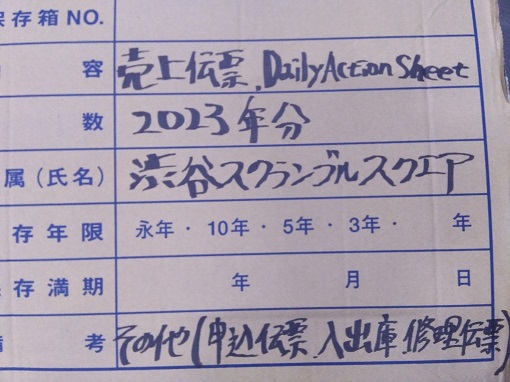 存箱NO.
容 売上伝票、Daily Action Sheet
数 2023年分
属(氏名) 渋谷スクランブルスクエア
存年限 永年・10年・5年・3年・ 年
存満期 年 月 日
考 その他(申込伝票 入出庫 修理伝票)